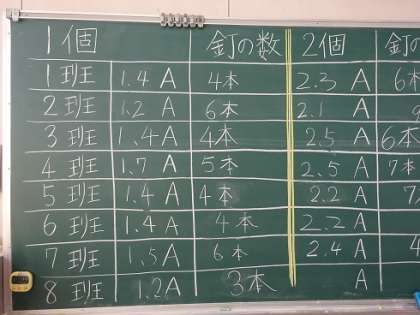 1個 釘の数 2個 釘
1班 1.4A 4本 2.3A 6本
2班 1.2A 6本 2.1A 8
3班 1.4A 4本 2.5A 6本
4班 1.7A 5本 2.5A 7本
5班 1.4A 4本 2.2A 7
6班 1.4A 4本 2.2A
7班 1.5A 6本 2.4A
8班 1.2A 3本 A